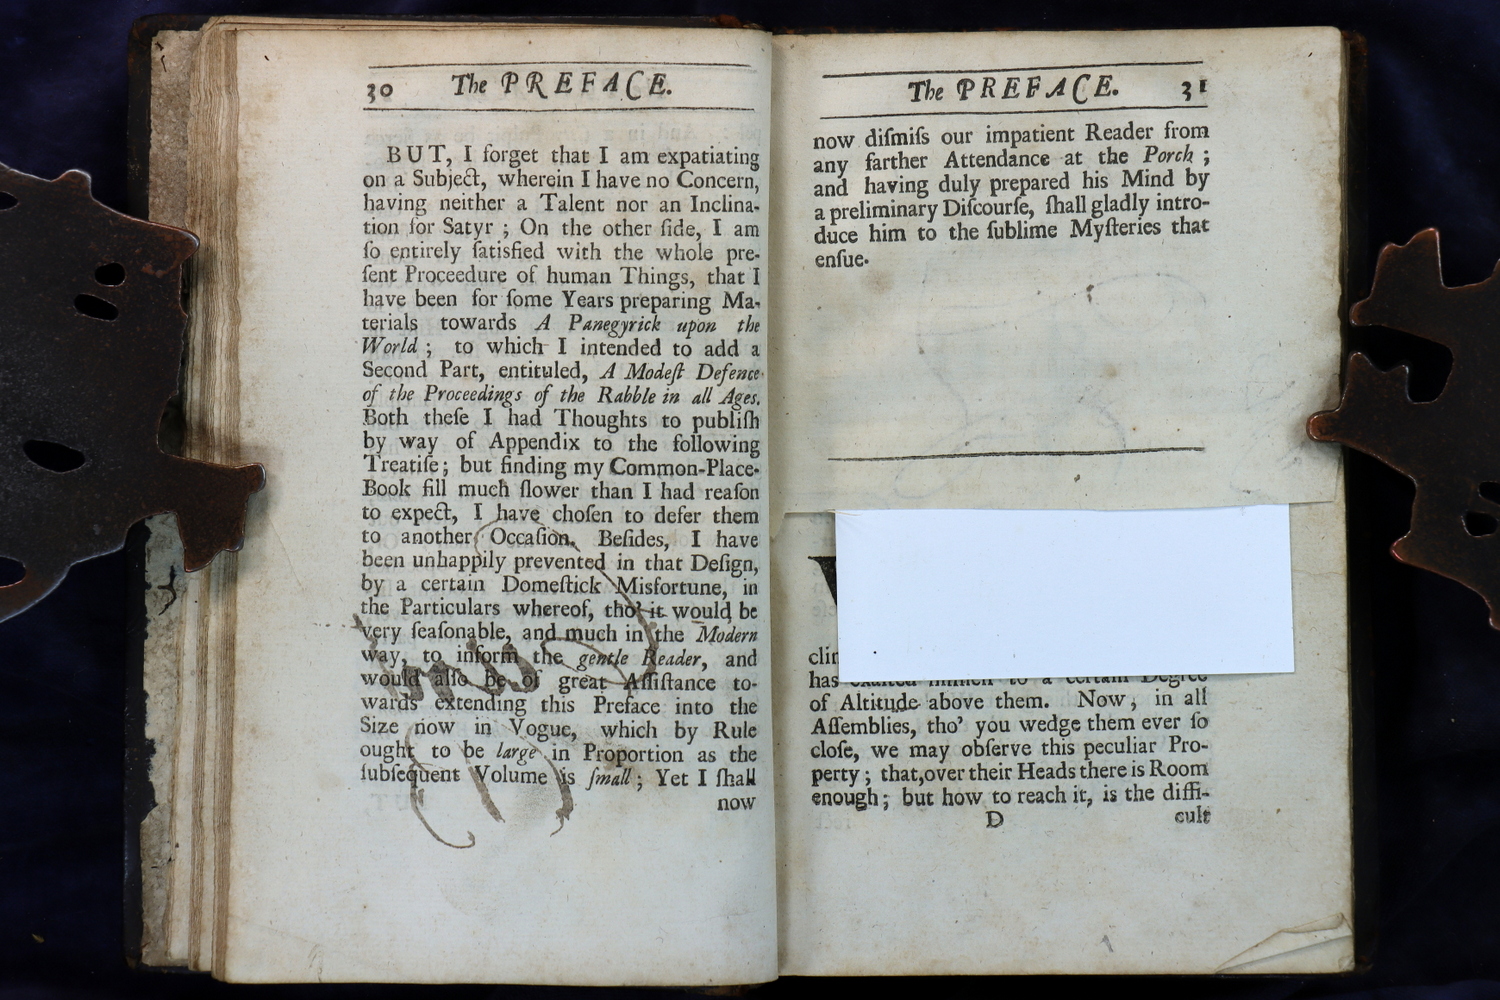 30 The PREFACE.
BUT, I forget that I am expatiating
on a Subject, wherein I have no Concern,
having neither a Talent nor an Inclina-
tion for Satyr ; On the other ſide, I am
ſo entirely ſatisfied with the whole pre-
ſent Proceedure of human Things, that I
have been for ſome Years preparing Ma-
terials towards A Panegyrick upon the
World ; to which I intended to add a
Second Part, entituled, A Modeſt Defence
of the Proceedings of the Rabble in all Ages.
Both theſe I had Thoughts to publiſh
by way of Appendix to the following
Treatiſe; but finding my Common-Place-
Book fill much ſlower than I had reaſon
to expect, I have choſen to defer them
to another Occaſion. Beſides, I have
been unhappily prevented in that Deſign,
by a certain Domeſtick Misfortune, in
the Particulars whereof, tho' it would be
very ſeaſonable, and much in the Modern
way, to inform the gentle Reader, and
would alſo be of great Aſſiſtance to-
wards extending this Preface into the
Size now in Vogue, which by Rule
ought to be large in Proportion as the
ſubſequent Volume is ſmall ; Yet I ſhall
now
The PREFACE. 31
now diſmiſs our impatient Reader from
any farther Attendance at the Porch ;
and having duly prepared his Mind by
a preliminary Diſcourſe, ſhall gladly intro-
duce him to the ſublime Myſteries that
enſue.
has exalted himſelf to a certain Degree
of Altitude above them. Now, in all
Aſſemblies, tho' you wedge them ever ſo
cloſe, we may obſerve this peculiar Pro-
perty ; that,over their Heads there is Room
enough ; but how to reach it, is the diffi-
D cult